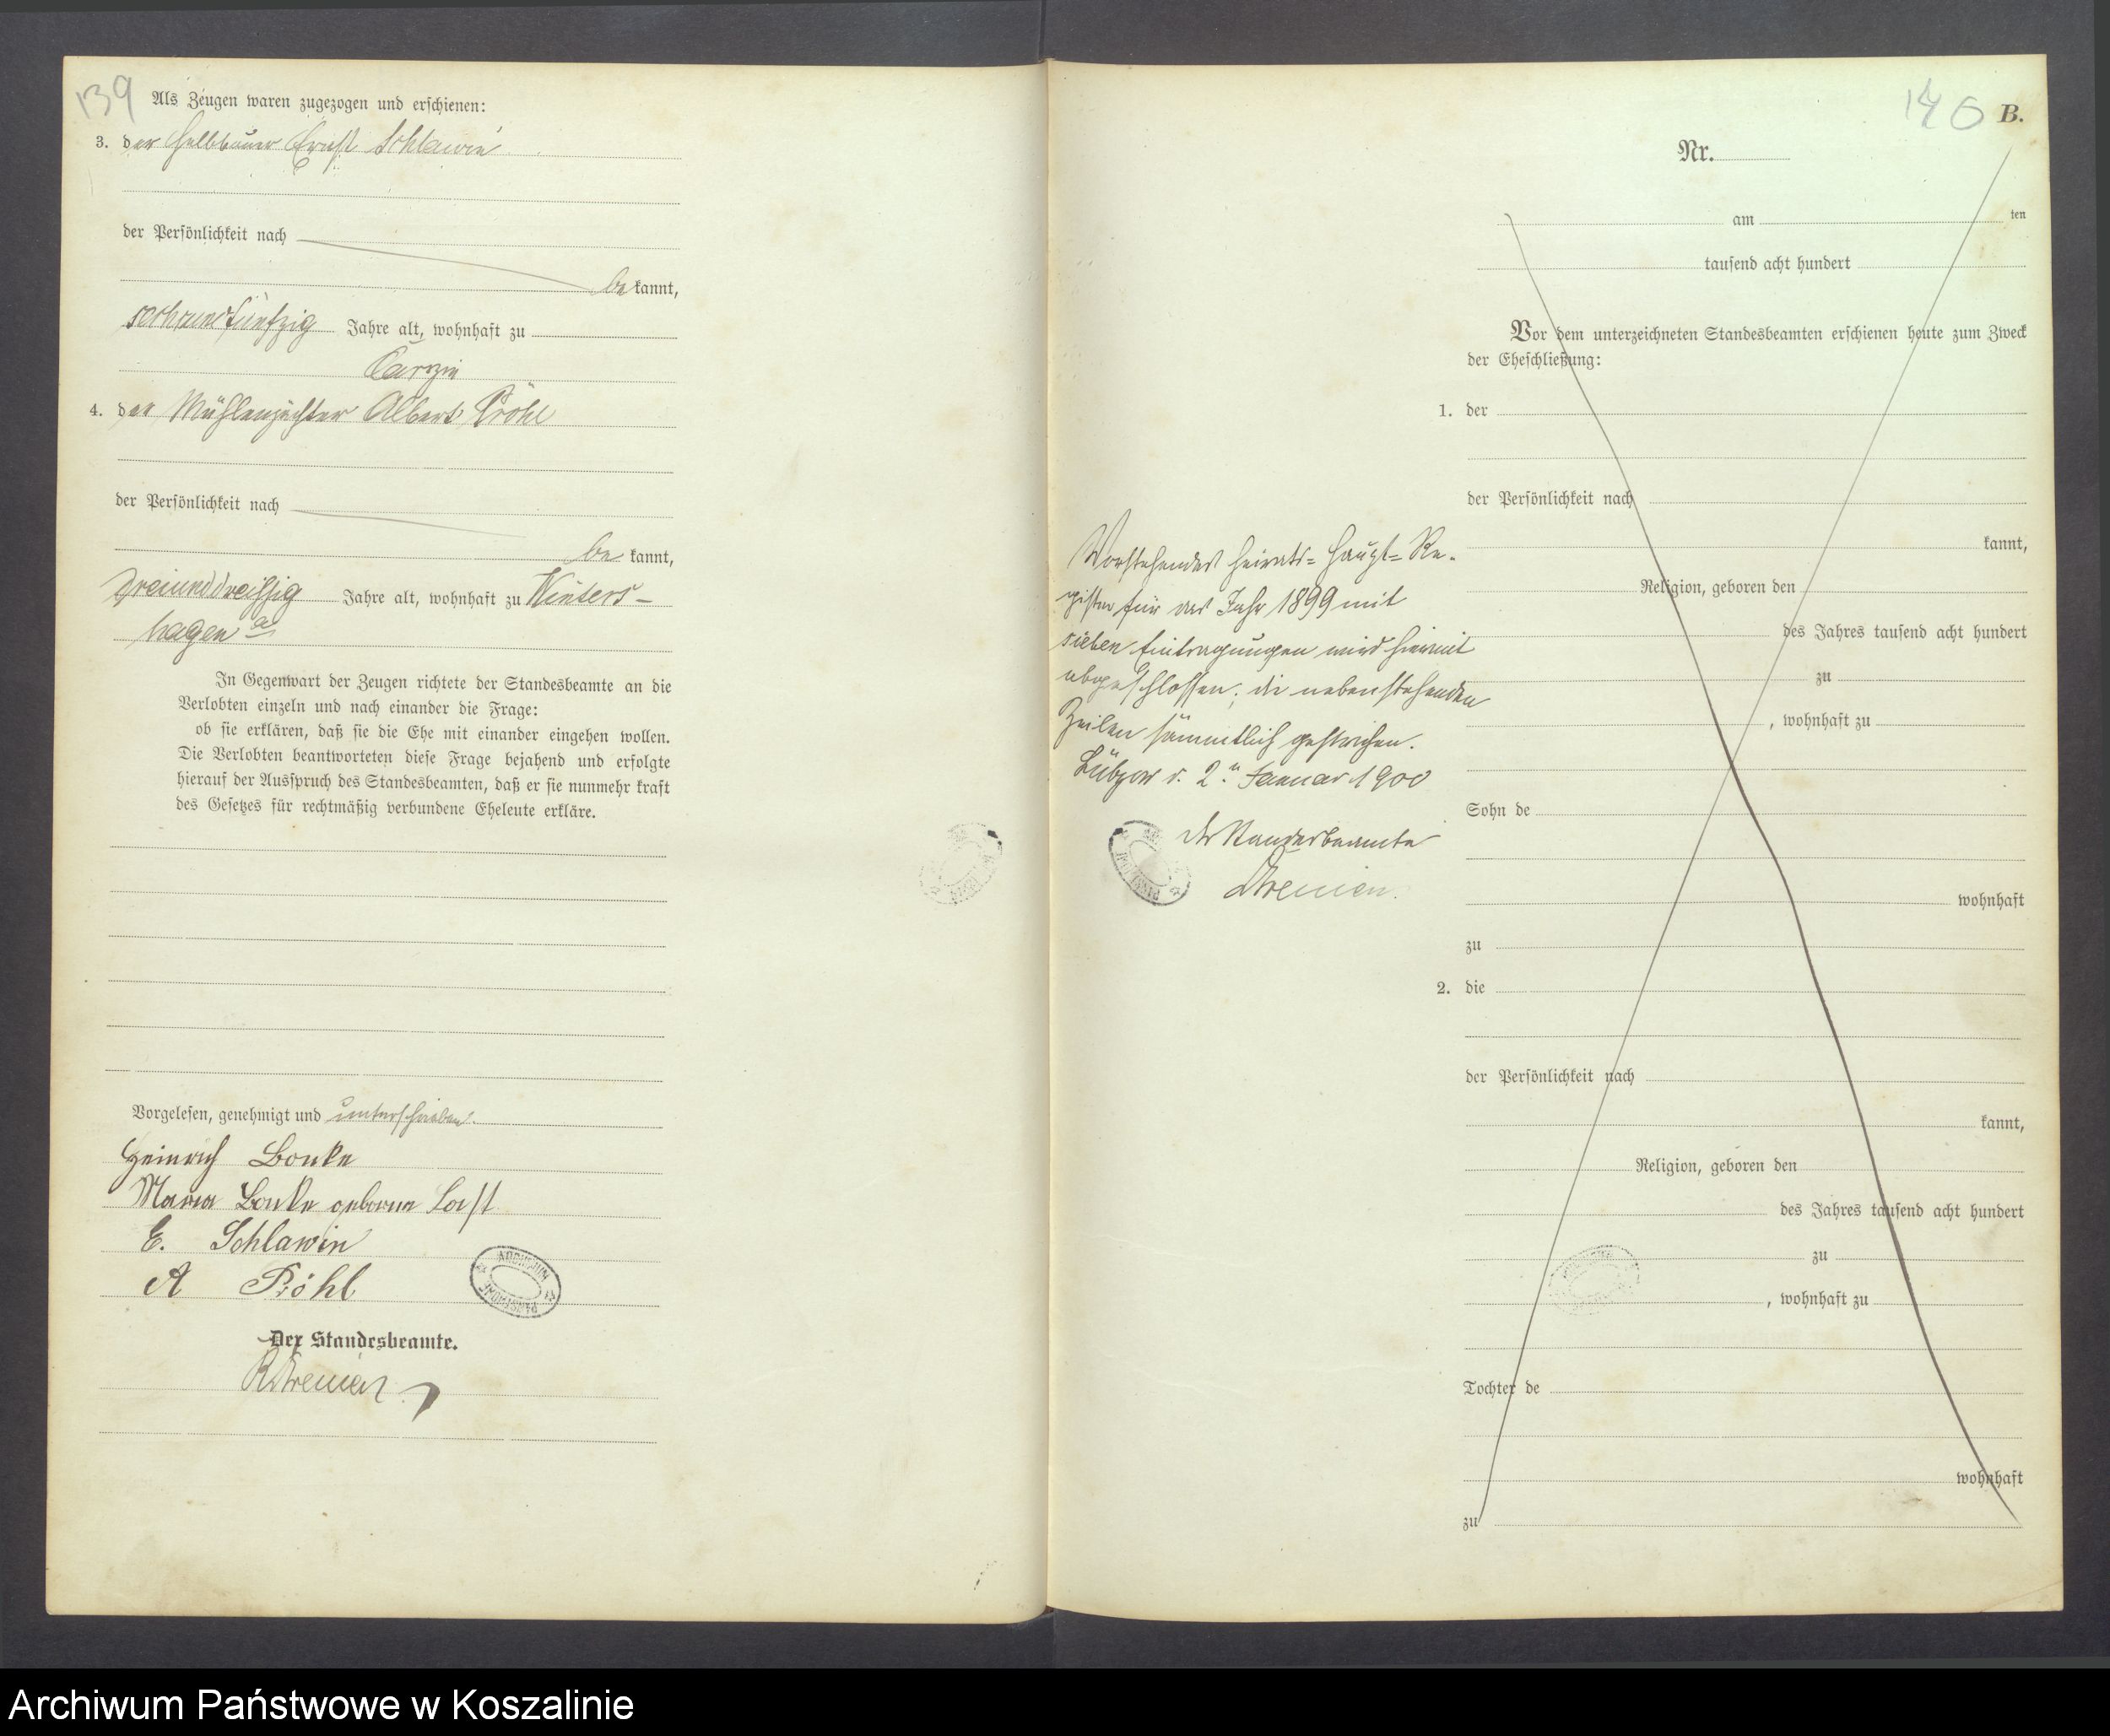 139
Als Zeugen waren zugezogen und erschienen:
3. der Halbbauer Ernst Schlawin
der Persönlichkeit nach
bekannt,
sechsundfünfzig Jahre alt, wohnhaft zu
Carzin
4. der Mühlenpächter Albert Pröhl
der Persönlichkeit nach
be kannt,
dreiunddreißig Jahre alt, wohnhaft zu Winters-
hagen a
In Gegenwart der Zeugen richtete der Standesbeamte an die
Verlobten einzeln und nach einander die Frage:
ob sie erklären, daß sie die Ehe mit einander eingehen wollen.
Die Verlobten beantworteten diese Frage bejahend und erfolgte
hierauf der Ausspruch des Standesbeamten, daß er sie nunmehr kraft
des Gesetzes für rechtmäßig verbundene Eheleute erkläre.
Vorgelesen, genehmigt und unterschrieben.
Heinrich
Maria geborne
E. Schlawin
A Pröhl
ARCHIWUM PAŃSTWOWE
Der Standesbeamte.
140 B.
Nr.
am ten
tausend acht hundert
Vor dem unterzeichneten Standesbeamten erschienen heute zum Zweck
der Eheschließung:
1. der
der Persönlichkeit nach
kannt,
Religion, geboren den
des Jahres tausend acht hundert
zu
, wohnhaft zu
Sohn de
wohnhaft
zu
2. die
der Persönlichkeit nach
kannt,
Religion, geboren den
des Jahres tausend acht hundert
zu
, wohnhaft zu
Tochter de
wohnhaft
zu
Vorstehendes Heirats-Haupt-Re-
gister für das Jahr 1899 mit
sieben Eintragungen wird hiermit
abgeschlossen; die nebenstehenden
Zeilen sämmtlich gestrichen.
Lübzow d. 2.n Januar 1900
Der Standesbeamte
Archiwum Państwowe w Koszalinie